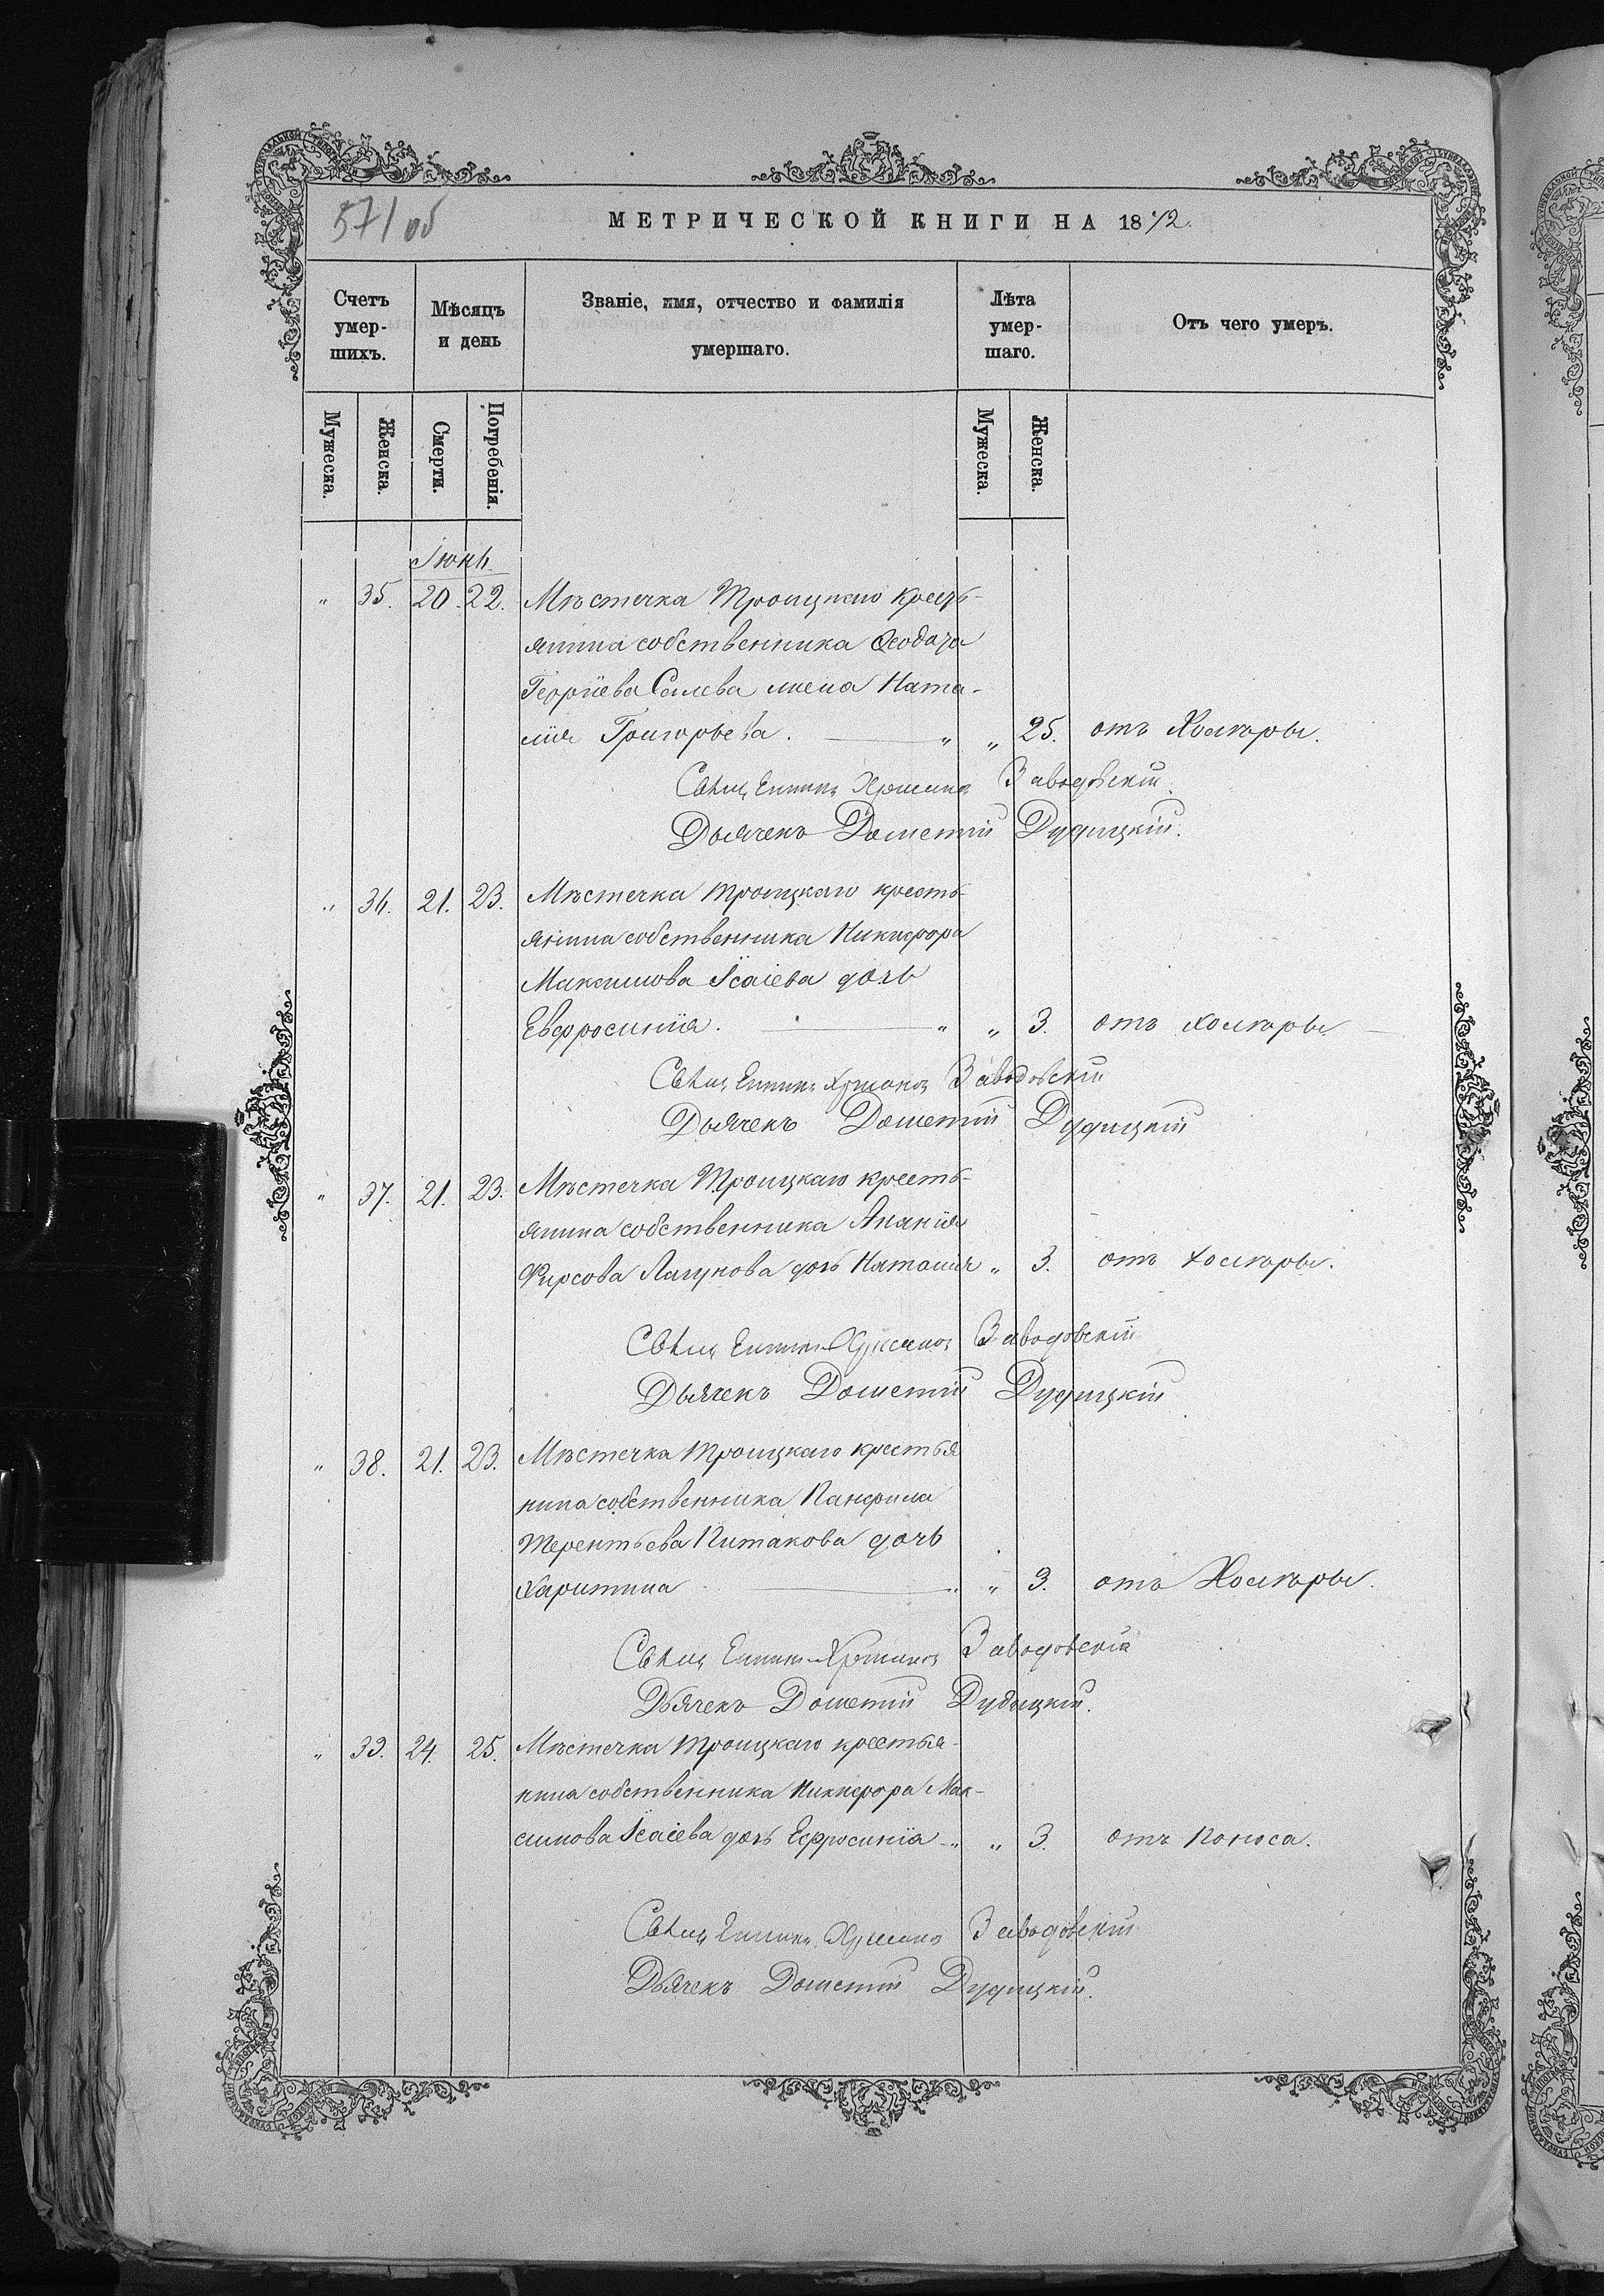 57/об
МЕТРИЧЕСКОЙ КНИГИ НА 1872.
Счетъ умер-шихъ.
Мѣсяцъ и день
Званіе, имя, отчество и фамилія умершаго.
Лѣта умер-шаго.
Отъ чего умеръ.
Мужеска.
Женска.
Смерти.
Погребенія.
Мужеска.
Женска.
Іюнь.
" 35. 20. 22. Мѣстечка Троицкаго кресть-
янина собственника Ѳеодора
Георгіева жена Ната-
лія Григорьева. " " 25. отъ Холеры.
Священникъ Заводовскій.
Дьячекъ Дометій Дудицкій.
" 36. 21. 23. Мѣстечка Троицкаго кресть-
янина собственника Никифора
Максимова Ісаіева дочь
Евфросинія. " " 3. отъ холеры
Священникъ Заводовскій
Дьячекъ Дометій Дудицкій
" 37. 21. 23. Мѣстечка Троицкаго кресть-
янина собственника Ананія
Фирсова Лагунова дочь Наталія " 3. отъ холеры.
Священникъ Заводовскій
Дьячекъ Дометій Дудицкій
" 38. 21. 23. Мѣстечка Троицкаго крестья
нина собственника Панфила
Терентьева Китакова дочь
Харитина " " 3. отъ Холеры.
Священникъ Заводовскій
Дьячекъ Дометій Дудицкій.
" 39. 24. 25. Мѣстечка Троицкаго крестья-
нина собственника Никифора Мак-
симова Ісаіева дочь Ефросинія " " 3. отъ Поноса.
Священникъ Заводовскій
Дьячекъ Дометій Дудицкій.